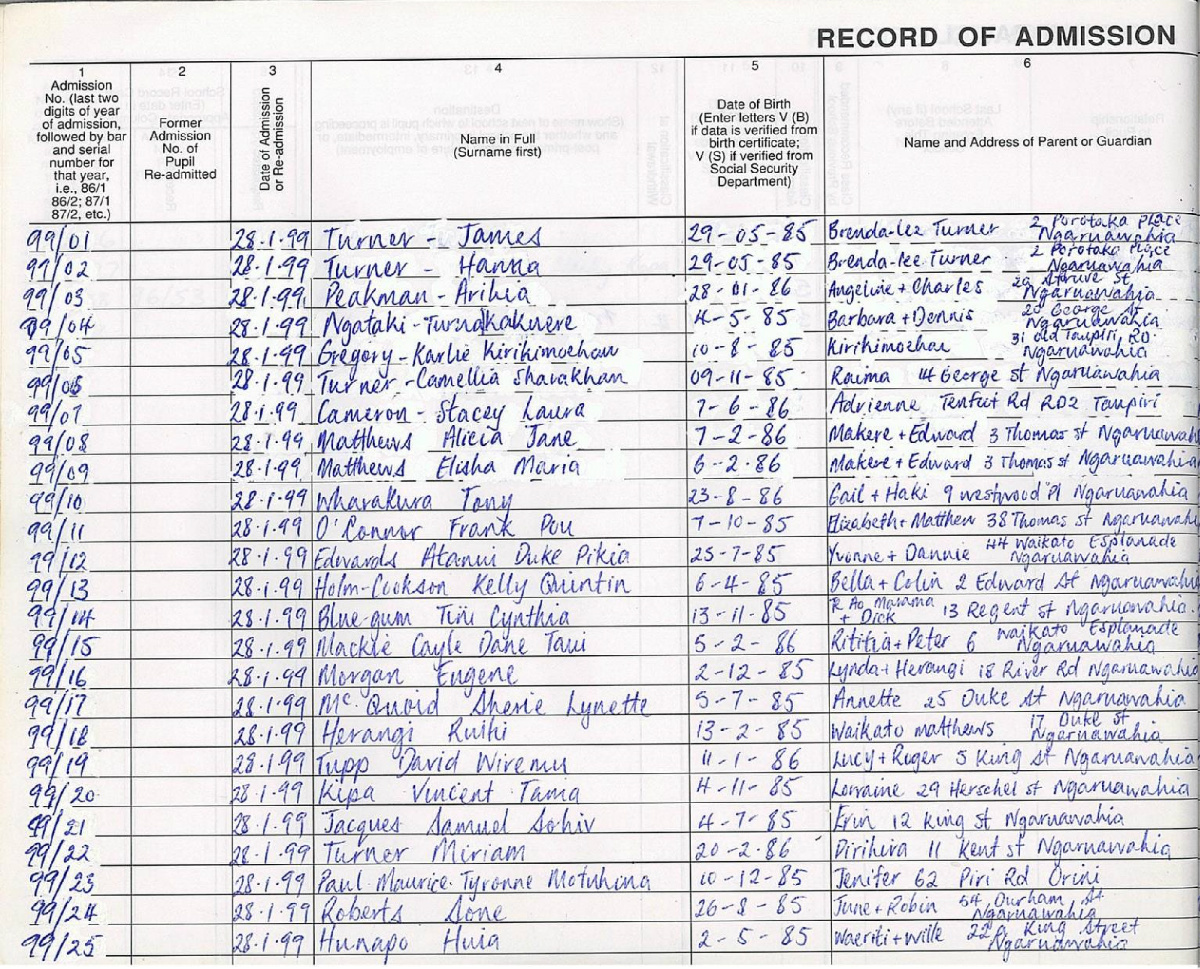 RECORD OF ADMISSION
1 2 3 4 5 6
Admission No. (last two digits of year of admission, followed by bar and serial number for that year, i.e., 86/1 86/2; 87/1 87/2, etc.) Former Admission No. of Pupil Re-admitted Date of Admission or Re-admission Name in Full (Surname first) Date of Birth (Enter letters V (B) if data is verified from birth certificate; V (S) if verified from Social Security Department) Name and Address of Parent or Guardian
99/01 28.1.99 Turner - James 29-05-85 Brenda-lee Turner 2 Porotaka Place Ngaruawahia
99/02 28.1.99 Turner - Hanna 29-05-85 Brenda-lee Turner 2 Porotaka Place Ngaruawahia
99/03 28.1.99 Peakman - Arihia 28-01-86 Angeline + Charles St Ngaruawahia
99/04 28.1.99 Ngataki- 4-5-85 Barbara + Dennis 20 George St Ngaruawahia
99/05 28.1.99 Gregory-Karlie 10-8-85 31 old Taupiri RD. Ngaruawahia
99/06 28.1.99 Turner-Camellia Sharakhan 09-11-85 Raima 14 George st Ngaruawahia
99/07 28.1.99 Cameron - Stacey Laura 7-6-86 Adrienne Rd RD2 Taupiri
99/08 28.1.99 Matthews Alicia Jane 7-2-86 Makere + Edward 3 Thomas st Ngaruawah
99/09 28.1.99 Matthews Elisha Maria 6-2-86 Makere + Edward 3 Thomas st Ngaruawahia
99/10 28.1.99 Wharakura Tony 23-8-86 Gail + Haki 9 westwood Pl Ngaruawahia
99/11 28.1.99 O'Connor Frank Pou 7-10-85 Elizabeth + Matthew 38 Thomas st Ngaruawah
99/12 28.1.99 Edwards Atanui Duke Pikia 25-7-85 Yvonne + Dannie 44 Waikato Esplanade Ngaruawahia
99/13 28.1.99 Holm-Cookson Kelly Quintin 6-4-85 Bella + Colin 2 Edward St Ngaruawahia
99/14 28.1.99 Blue-gum Tini Cynthia 13-11-85 + Dick 13 Regent st Ngaruawahia.
99/15 28.1.99 Mackie Cayle Dane Taui 5-2-86 + Peter 6 Waikato Esplanade Ngaruawahia
99/16 28.1.99 Morgan Eugene 2-12-85 Lynda + Herangi 18 River Rd Ngaruawahia
99/17 28.1.99 Mc Quoid Sherie Lynette 5-7-85 Annette 25 Duke St Ngaruawahia
99/18 28.1.99 Herangi Ruihi 13-2-85 Waikato matthews 17 Duke st Ngaruawahia
99/19 28.1.99 Tupp David Wiremu 11-1-86 Lucy + Roger 5 King St Ngaruawahia
99/20 28.1.99 Kipa Vincent Tama 4-11-85 Lorraine 29 Herschel st Ngaruawahia
99/21 28.1.99 Jacques Samuel 4-7-85 Erin 12 King st Ngaruawahia
99/22 28.1.99 Turner Miriam 20-2-86 Pirihira 11 Kent st Ngaruawahia
99/23 28.1.99 Paul-Maurice-Tyronne Motuhina 10-12-85 Jenifer 62 Piri Rd Orini
99/24 28.1.99 Roberts Sone 26-8-85 June + Robin 54 Durham St Ngaruawahia
99/25 28.1.99 Hunapo Huia 2-5-85 22a King Street Ngaruawahia